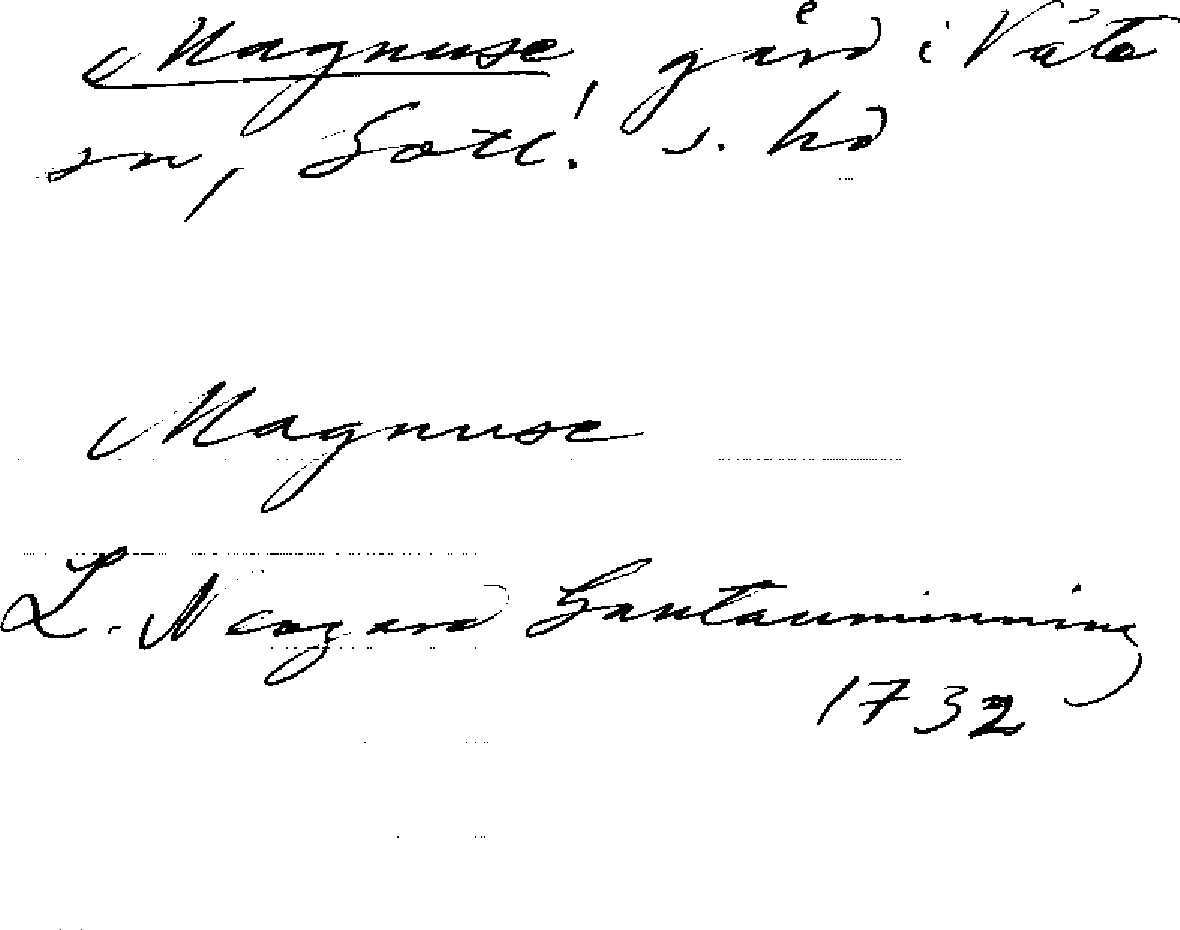 Magnuse, gård i Väte
sn, Gotl! s. hd
Magnuse
L. Neogard Gautauminning
1732